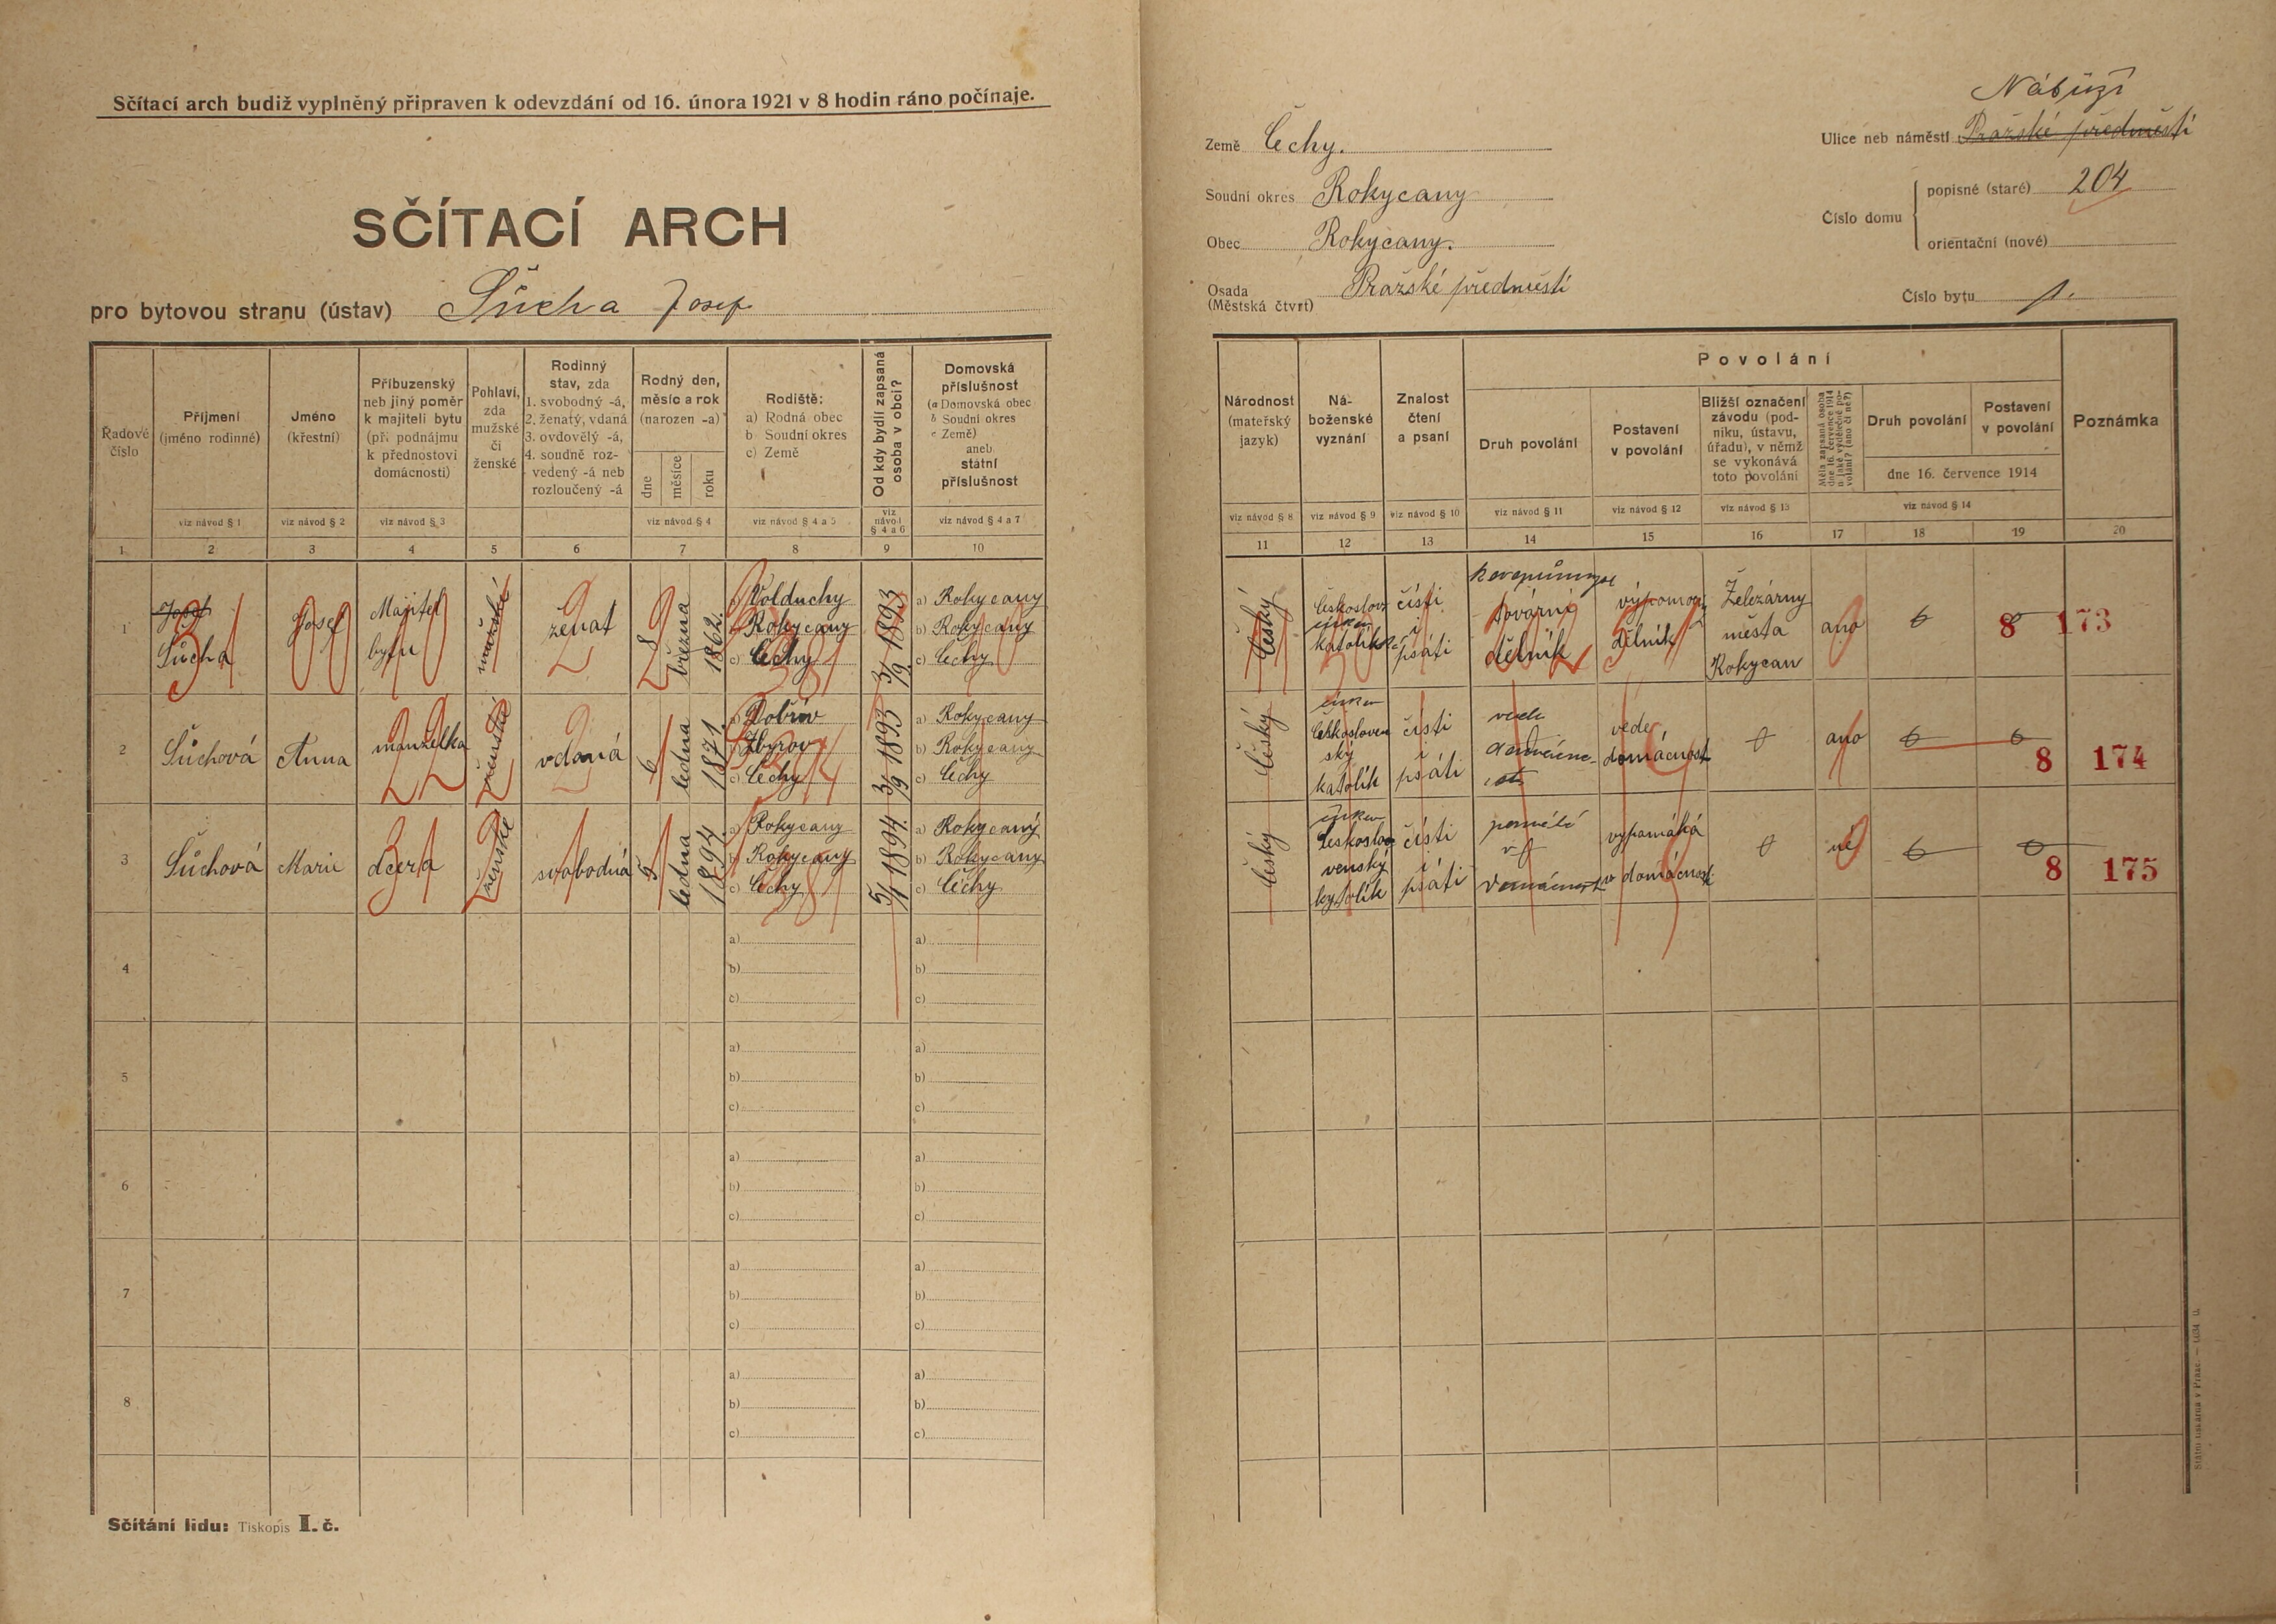 Sčítací arch budiž vyplněný připraven k odevzdání od 16. února 1921 v 8 hodin ráno počínaje.
SČÍTACÍ ARCH
pro bytovou stranu (ústav) Sůcha Josef
Země Čechy.
Soudní okres Rokycany
Obec Rokycany.
Osada (Městská čtvrt) Pražské předměstí
Ulice neb náměstí Pražské předměstí
Číslo domu
popisné (staré) 204
orientační (nové)
Číslo bytu 1.
Řadové číslo
Příjmení (jméno rodinné)
Jméno (křestní)
Příbuzenský neb jiný poměr k majiteli bytu (při podnájmu k přednostovi domácnosti)
Pohlaví, zda mužské či ženské
Rodinný stav, zda 1. svobodný -á, 2. ženatý, vdaná 3. ovdovělý -á, 4. soudně rozvedený -á neb rozloučený -á
Rodný den, měsíc a rok (narozen -a)
dne
měsíce
roku
Rodiště:
a) Rodná obec
b) Soudní okres
c) Země
Od kdy bydlí zapsaná osoba v obci?
Domovská příslušnost
(a Domovská obec
b Soudní okres
c Země)
aneb
státní příslušnost
viz návod § 1
viz návod § 2
viz návod § 3
viz návod § 4
viz návod § 4 a 5
viz návod § 4 a 6
viz návod § 4 a 7
1 2 3 4 5 6 7 8 9 10
Národnost (mateřský jazyk)
Náboženské vyznání
Znalost čtení a psaní
Povolání
Druh povolání
Postavení v povolání
Bližší označení závodu (podniku, ústavu, úřadu), v němž se vykonává toto povolání
Měla zapsaná osoba dne 16. července 1914 n jaké výdělečné povolání? (ano či ne?)
Druh povolání
Postavení v povolání
dne 16. července 1914
Poznámka
viz návod § 8
viz návod § 9
viz návod § 10
viz návod § 11
viz návod § 12
viz návod § 13
viz návod § 14
11 12 13 14 15 16 17 18 19 20
1
Josef
Sůcha
Josef
Majitel
bytu
mužské
ženat
8 března 1862.
a) Volduchy
b) Rokycany
c) Čechy
3/9 1893
a) Rokycany
b) Rokycany
c) Čechy
Český
katolík
čísti
i
psáti
tovární
dělník
dělník
Železárny
města
Rokycan
ano
8 173
2
Sůchová
Anna
manželka
ženské
vdaná
6 ledna 1871.
a) Dobřív
b) Zbyrov
c) Čechy
3/9 1893
a) Rokycany
b) Rokycany
c) Čechy
Český
československý
katolík
čísti
i
psáti
vede
vede
domácnost
ano
8 174
3
Sůchová
Marie
dcera
ženské
svobodná
5 ledna 1894.
a) Rokycany
b) Rokycany
c) Čechy
5/1 1894.
a) Rokycany
b) Rokycany
c) Čechy
Český
Českoslo
venský
katolík
čísti
i
psáti
vypomáhá
v domácnosti
né
8 175
4
a)
b)
c)
a)
b)
c)
5
a)
b)
c)
a)
b)
c)
6
a)
b)
c)
a)
b)
c)
7
a)
b)
c)
a)
b)
c)
8
a)
b)
c)
a)
b)
c)
Sčítání lidu: Tiskopis I. č.